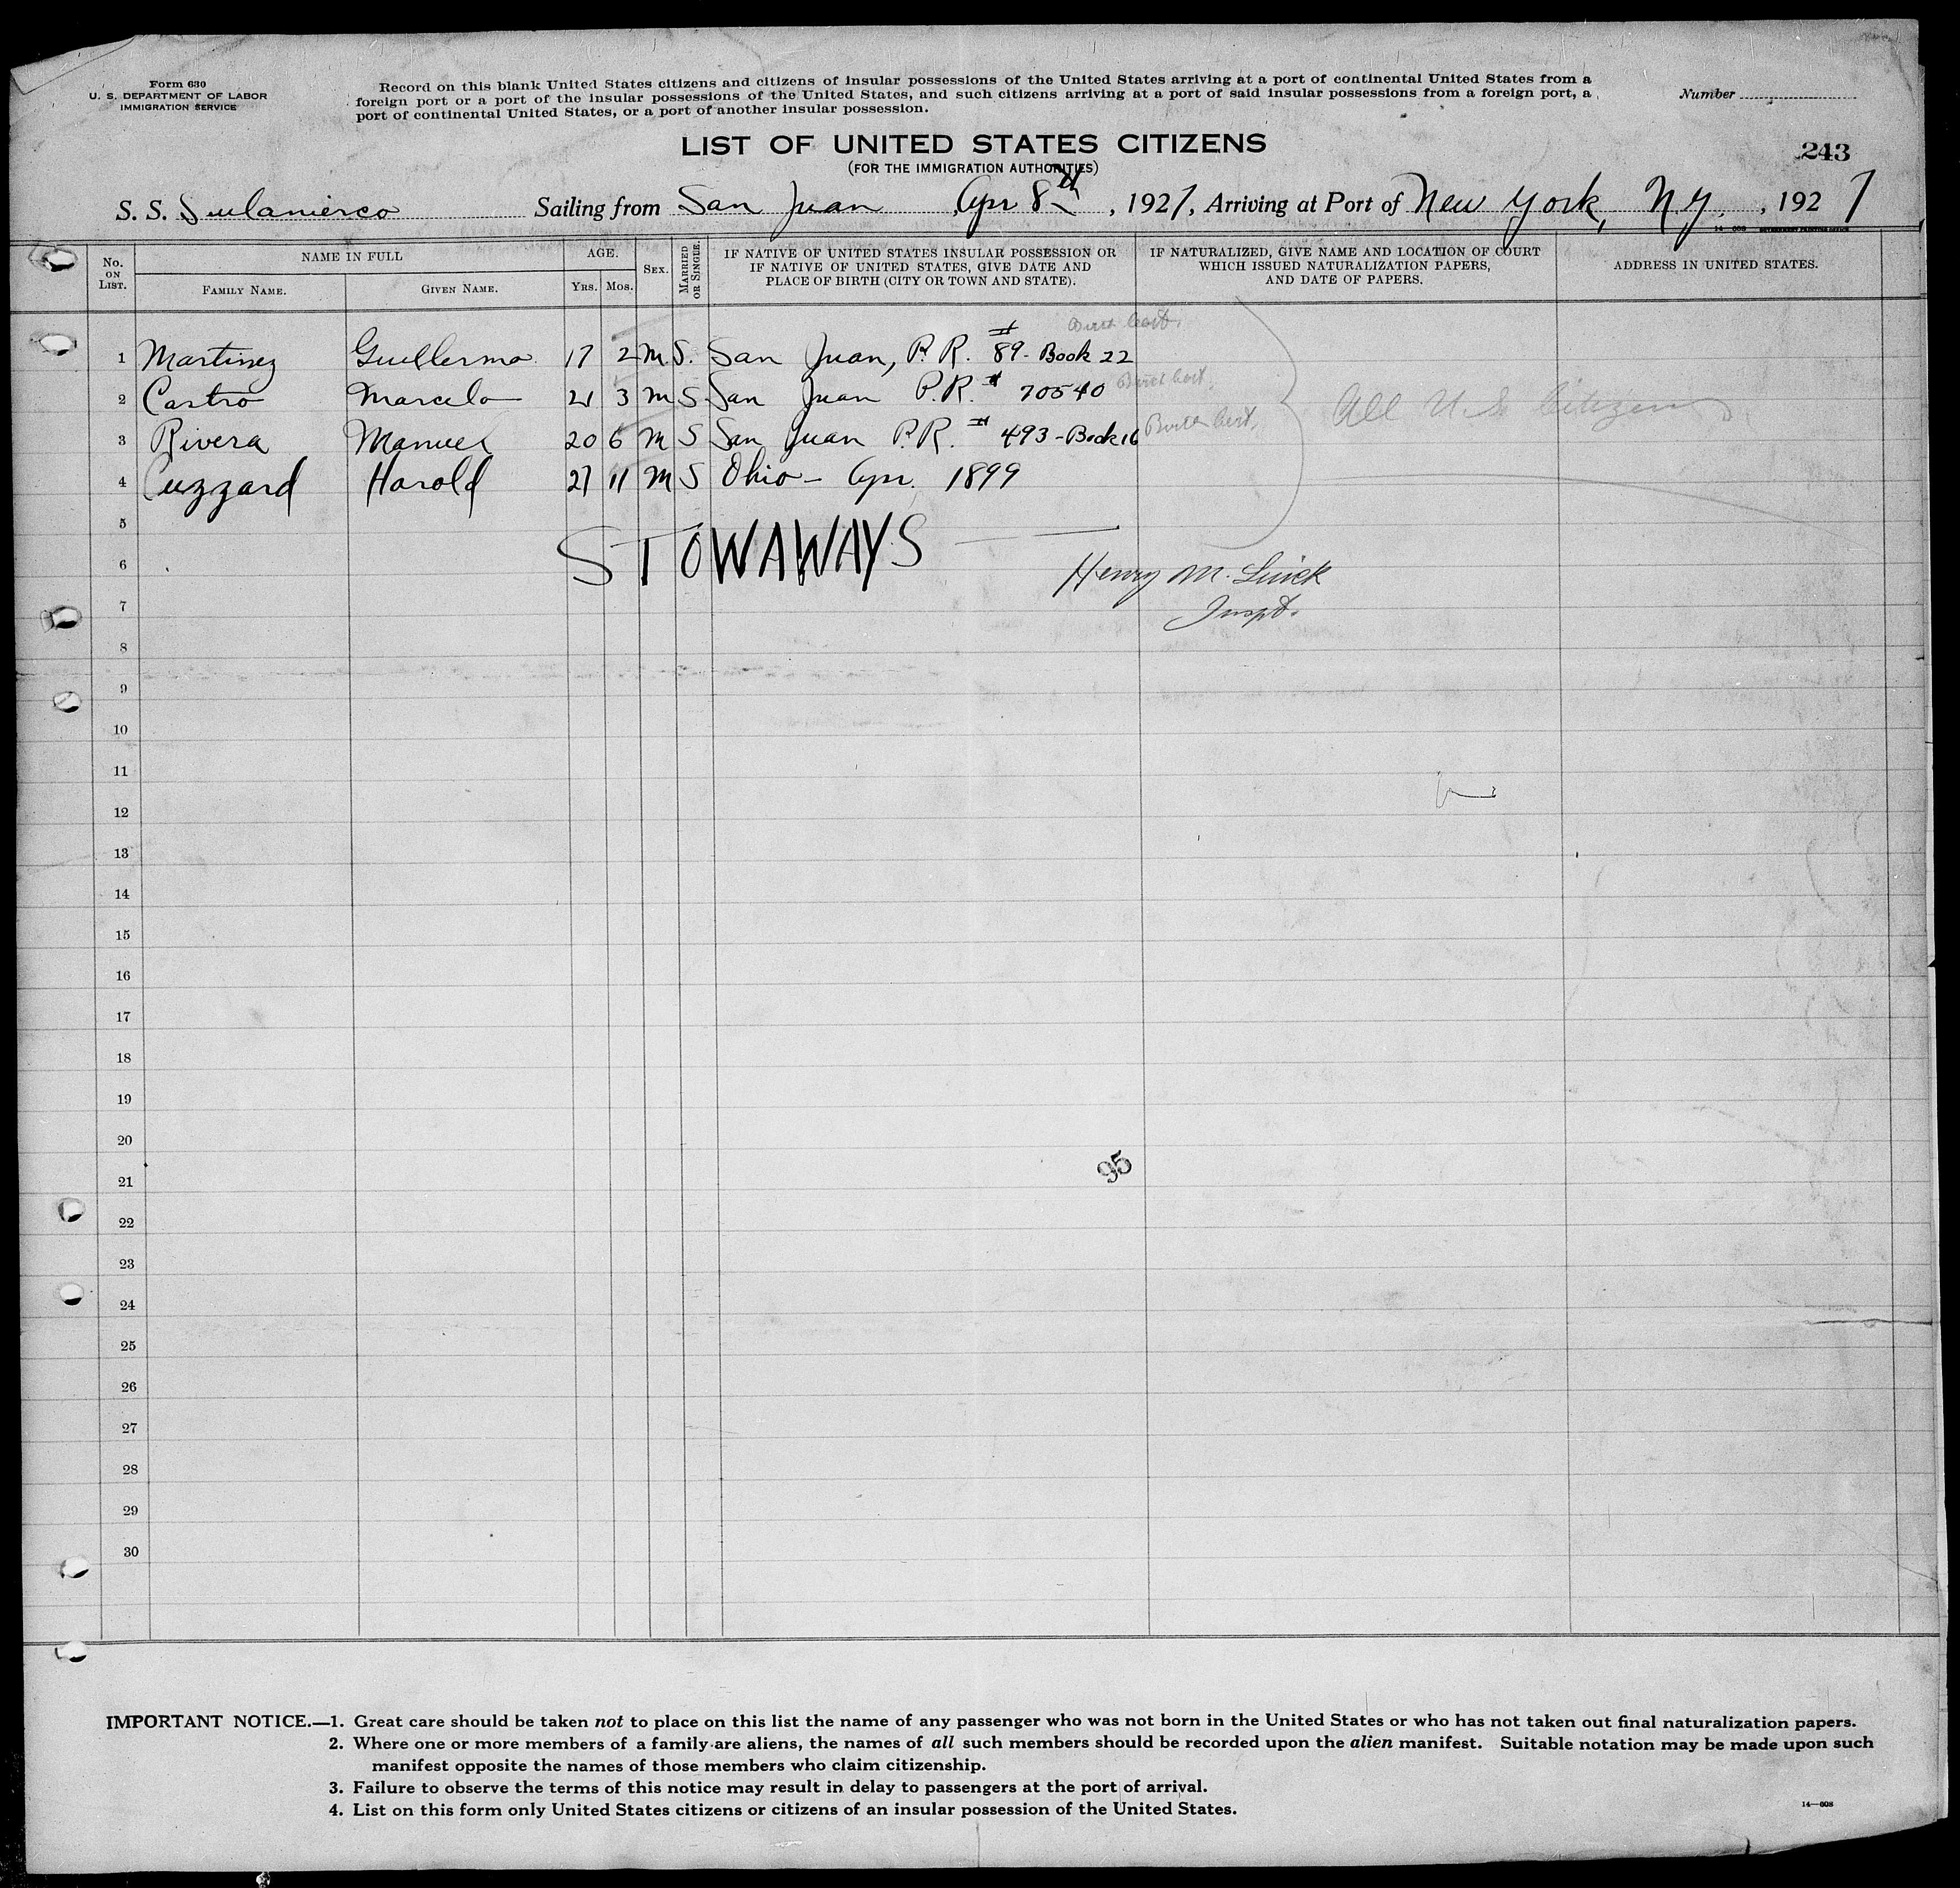 Form 630
U. S. DEPARTMENT OF LABOR
IMMIGRATION SERVICE
Record on this blank United States citizens and citizens of insular possessions of the United States arriving at a port of continental United States from a
foreign port or a port of the insular possessions of the United States, and such citizens arriving at a port of said insular possessions from a foreign port, a
port of continental United States, or a port of another insular possession.
Number
LIST OF UNITED STATES CITIZENS
(FOR THE IMMIGRATION AUTHORITIES)
243
S. S. Sailing from San Juan Apr 8th, 1927, Arriving at Port of New York, N.Y., 1927
No. ON LIST. NAME IN FULL AGE. SEX. MARRIED OR SINGLE. IF NATIVE OF UNITED STATES INSULAR POSSESSION OR IF NATIVE OF UNITED STATES, GIVE DATE AND PLACE OF BIRTH (CITY OR TOWN AND STATE). IF NATURALIZED, GIVE NAME AND LOCATION OF COURT WHICH ISSUED NATURALIZATION PAPERS, AND DATE OF PAPERS. ADDRESS IN UNITED STATES.
FAMILY NAME. GIVEN NAME. YRS. MOS.
Birth Cert.
1 Martinez Guillermo 17 2 M. S. San Juan, P.R. # 89 - Book 22
2 Castro Marcelo 21 3 M S San Juan P.R. # 70540 Birth Cert. All U.S. Citizens
3 Rivera Manuel 20 6 M S San Juan P.R. # 493 - Book 16 Birth Cert.
4 Cuzzard Harold 27 11 M S Ohio - Apr. 1899
5
STOWAWAYS
6 Henry M.
7 Inspt.
8
9
10
11
12
13
14
15
16
17
18
19
20
95
21
22
23
24
25
26
27
28
29
30
IMPORTANT NOTICE.—1. Great care should be taken not to place on this list the name of any passenger who was not born in the United States or who has not taken out final naturalization papers.
2. Where one or more members of a family are aliens, the names of all such members should be recorded upon the alien manifest. Suitable notation may be made upon such
manifest opposite the names of those members who claim citizenship.
3. Failure to observe the terms of this notice may result in delay to passengers at the port of arrival.
4. List on this form only United States citizens or citizens of an insular possession of the United States.
14—608